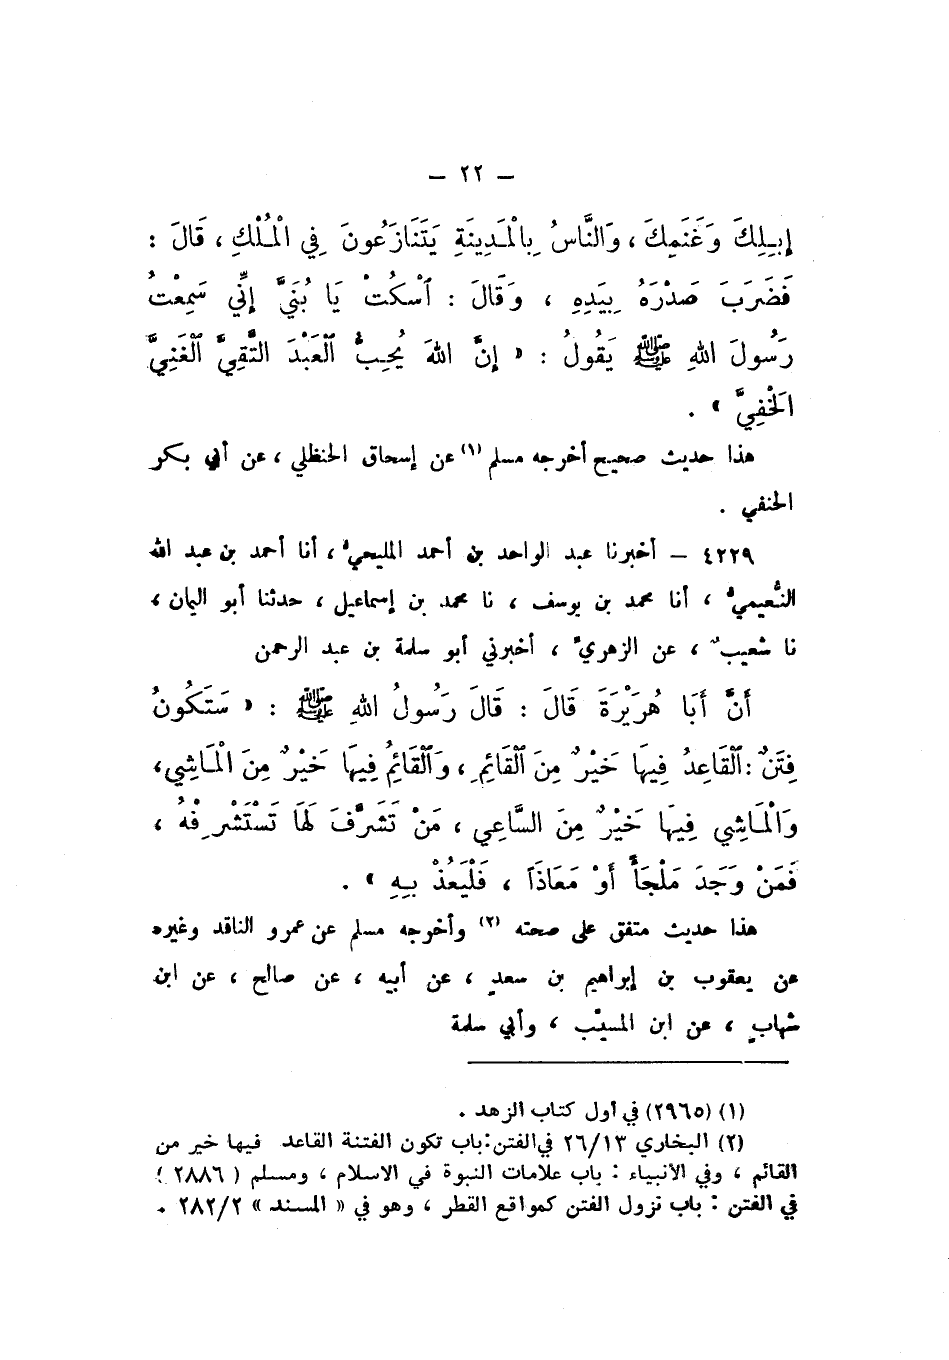 — ٢٢ —
إِبِلِكَ وَغَنَمِكَ ، وَالنَّاسُ بِالْمَدِينَةِ يَتَنَازَعُونَ فِي الْمُلْكِ ، قَالَ :
فَضَرَبَ صَدْرَهُ بِيَدِهِ ، وَقَالَ : ٱسْكُتْ يَا بُنَيَّ إِنِّي سَمِعْتُ
رَسُولَ اللهِ ﷺ يَقُولُ : « إِنَّ اللهَ يُحِبُّ ٱلْعَبْدَ التَّقِيَّ ٱلْغَنِيَّ
الْخَفِيَّ » .
هذا حديث صحيح أخرجه مسلم (١) عن إسحاق الحنظلي ، عن أبي بكر
الحنفي .
٤٢٢٩ — أخبرنا عبد الواحد بن أحمد المليحيُّ ، أنا أحمد بن عبد الله
النُّعيميُّ ، أنا محمد بن يوسف ، نا محمد بن إسماعيل ، حدثنا أبو اليمان ،
نا شعيبٌ ، عن الزهريِّ ، أخبرني أبو سلمة بن عبد الرحمن
أَنَّ أَبَا هُرَيْرَةَ قَالَ : قَالَ رَسُولُ اللهِ ﷺ : « سَتَكُونُ
فِتَنٌ : ٱلْقَاعِدُ فِيهَا خَيْرٌ مِنَ ٱلْقَائِمِ ، وَٱلْقَائِمُ فِيهَا خَيْرٌ مِنَ الْمَاشِي ،
وَالْمَاشِي فِيهَا خَيْرٌ مِنَ السَّاعِي ، مَنْ تَشَرَّفَ لَهَا تَسْتَشْرِفْهُ ،
فَمَنْ وَجَدَ مَلْجَأً أَوْ مَعَاذَاً ، فَلْيَعُذْ بِهِ » .
هذا حديث متفق على صحته (٢) وأخرجه مسلم عن عمرو الناقد وغيره
عن يعقوب بن إبراهيم بن سعدٍ ، عن أبيه ، عن صالح ، عن ابن
شهابٍ ، عن ابن المسيّب ، وأبي سلمة
(١) (٢٩٦٥) في أول كتاب الزهد .
(٢) البخاري ٢٦/١٣ في الفتن : باب تكون الفتنة القاعد فيها خير من
القائم ، وفي الأنبياء : باب علامات النبوة في الاسلام ، ومسلم ( ٢٨٨٦ )
في الفتن : باب نزول الفتن كمواقع القطر ، وهو في « المسند » ٢٨٢/٢ .